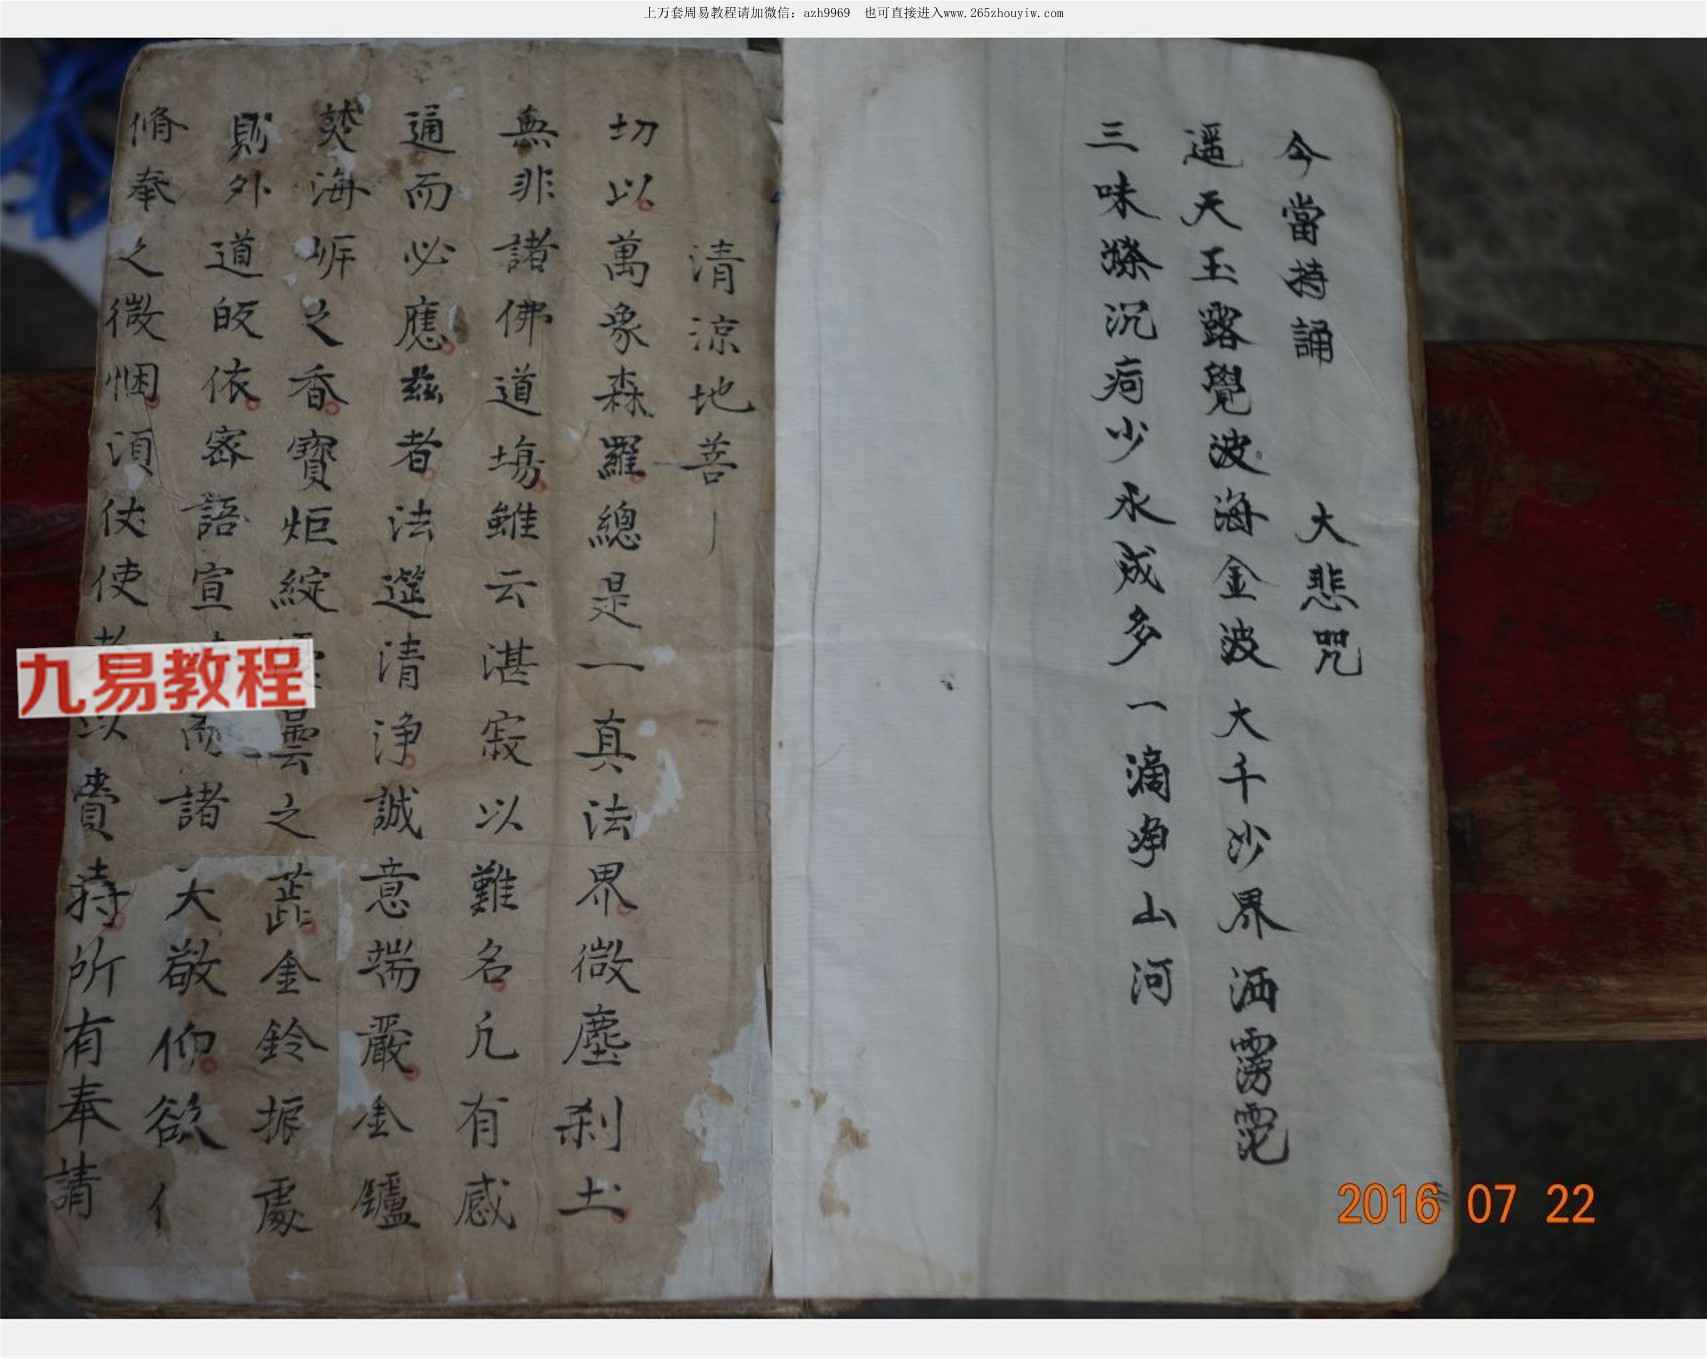 上万套周易教程请加微信: azh9969 也可直接进入www.265zhouyiw.com
今當持誦 大悲咒
遥天玉露覺波海金波大千沙界洒雱霓
三味㷧沉疴少永成多一滴净山河
清涼地菩
切以萬象森羅總是一真法界微塵刹土
無非諸佛道場雖云湛寂以難名凢有感
通而必應兹者法筵清净誠意端嚴金鑪
爇海岸之香寳炬綻曇之蕋金鈴振處
則外道皈依密語宣諸天敬仰欲
脩奉之微悃湏仗使以賫持所有奉請
九易教程
2016 07 22